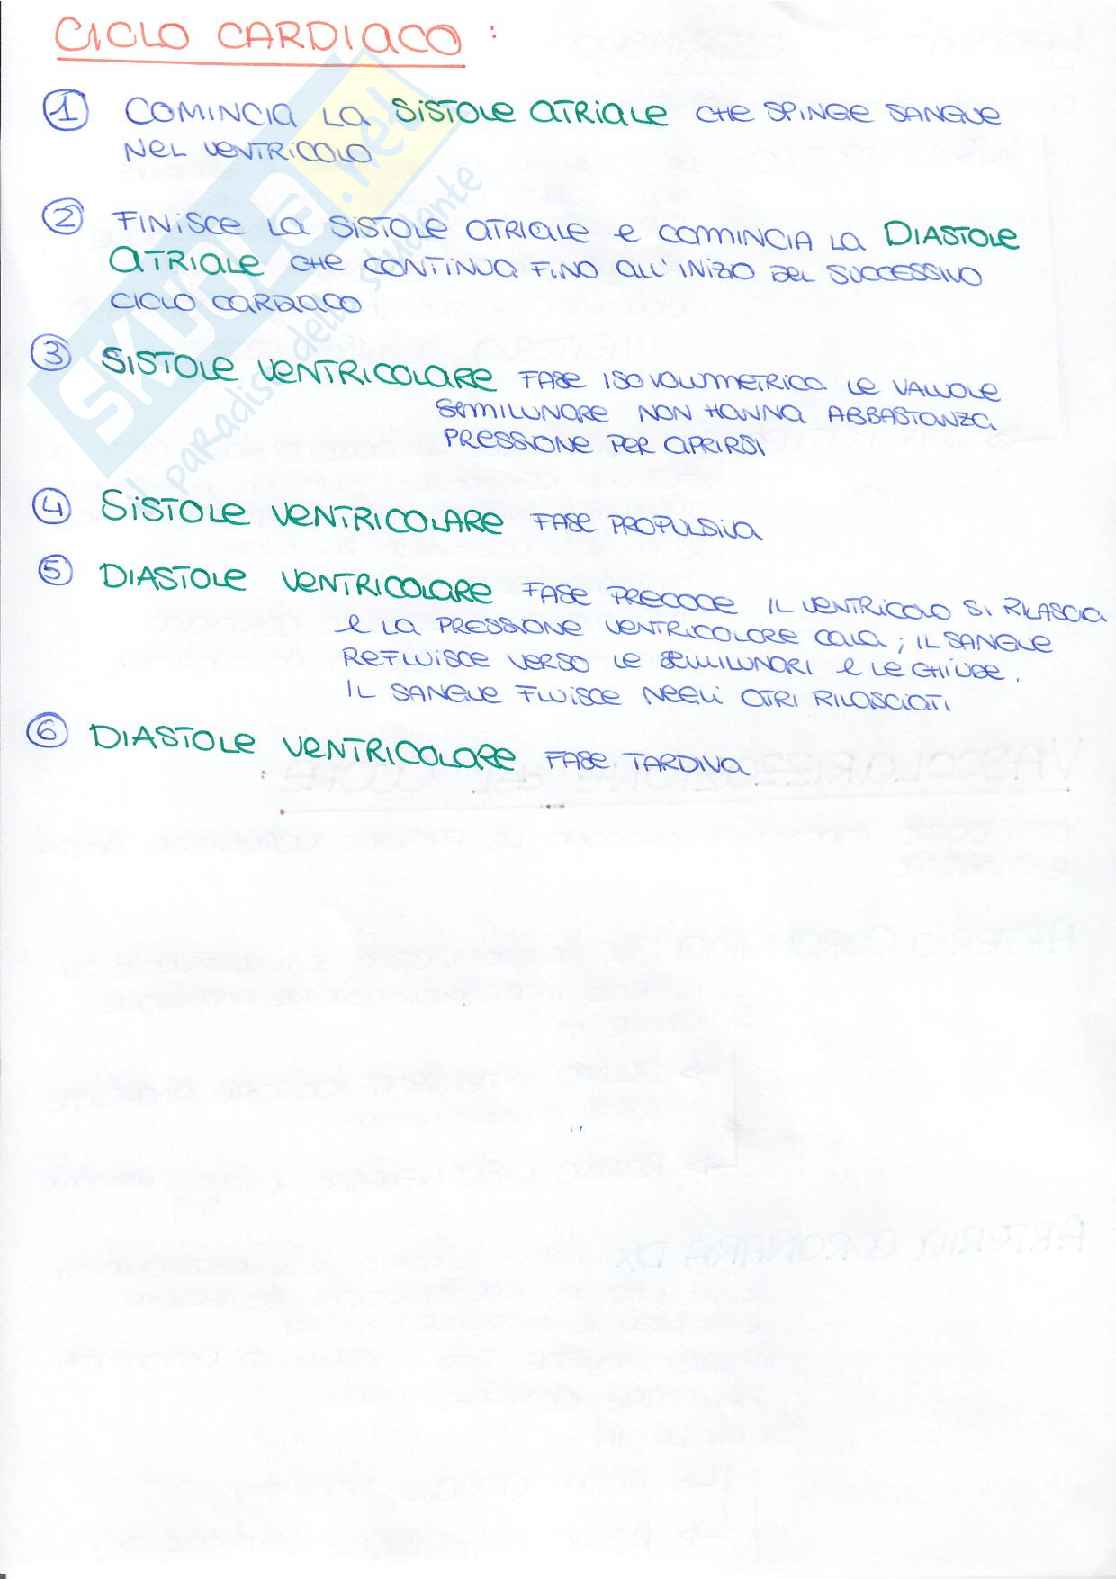 CICLO CARDIACO :
① COMINCIA LA SISTOLE ATRIALE CHE SPINGE SANGUE
NEL VENTRICOLO
② FINISCE LA SISTOLE ATRIALE E COMINCIA LA DIASTOLE
ATRIALE CHE CONTINUA FINO ALL'INIZIO DEL SUCCESSIVO
CICLO CARDIACO
③ SISTOLE VENTRICOLARE FASE ISOVOLUMETRICA LE VALVOLE
SEMILUNARE NON HANNA ABBASTANZA
PRESSIONE PER APRIRSI
④ SISTOLE VENTRICOLARE FASE PROPULSIVA
⑤ DIASTOLE VENTRICOLARE FASE PRECOCE IL VENTRICOLO SI RILASCIA
E LA PRESSIONE VENTRICOLORE CALA ; IL SANGUE
REFLUISCE VERSO LE SEMILUNARI E LE CHIUDE.
IL SANGUE FLUISCE NEGLI ATRI RILASCIATI
⑥ DIASTOLE VENTRICOLARE FASE TARDIVA
SKUOLA.net
il paradiso dello studente